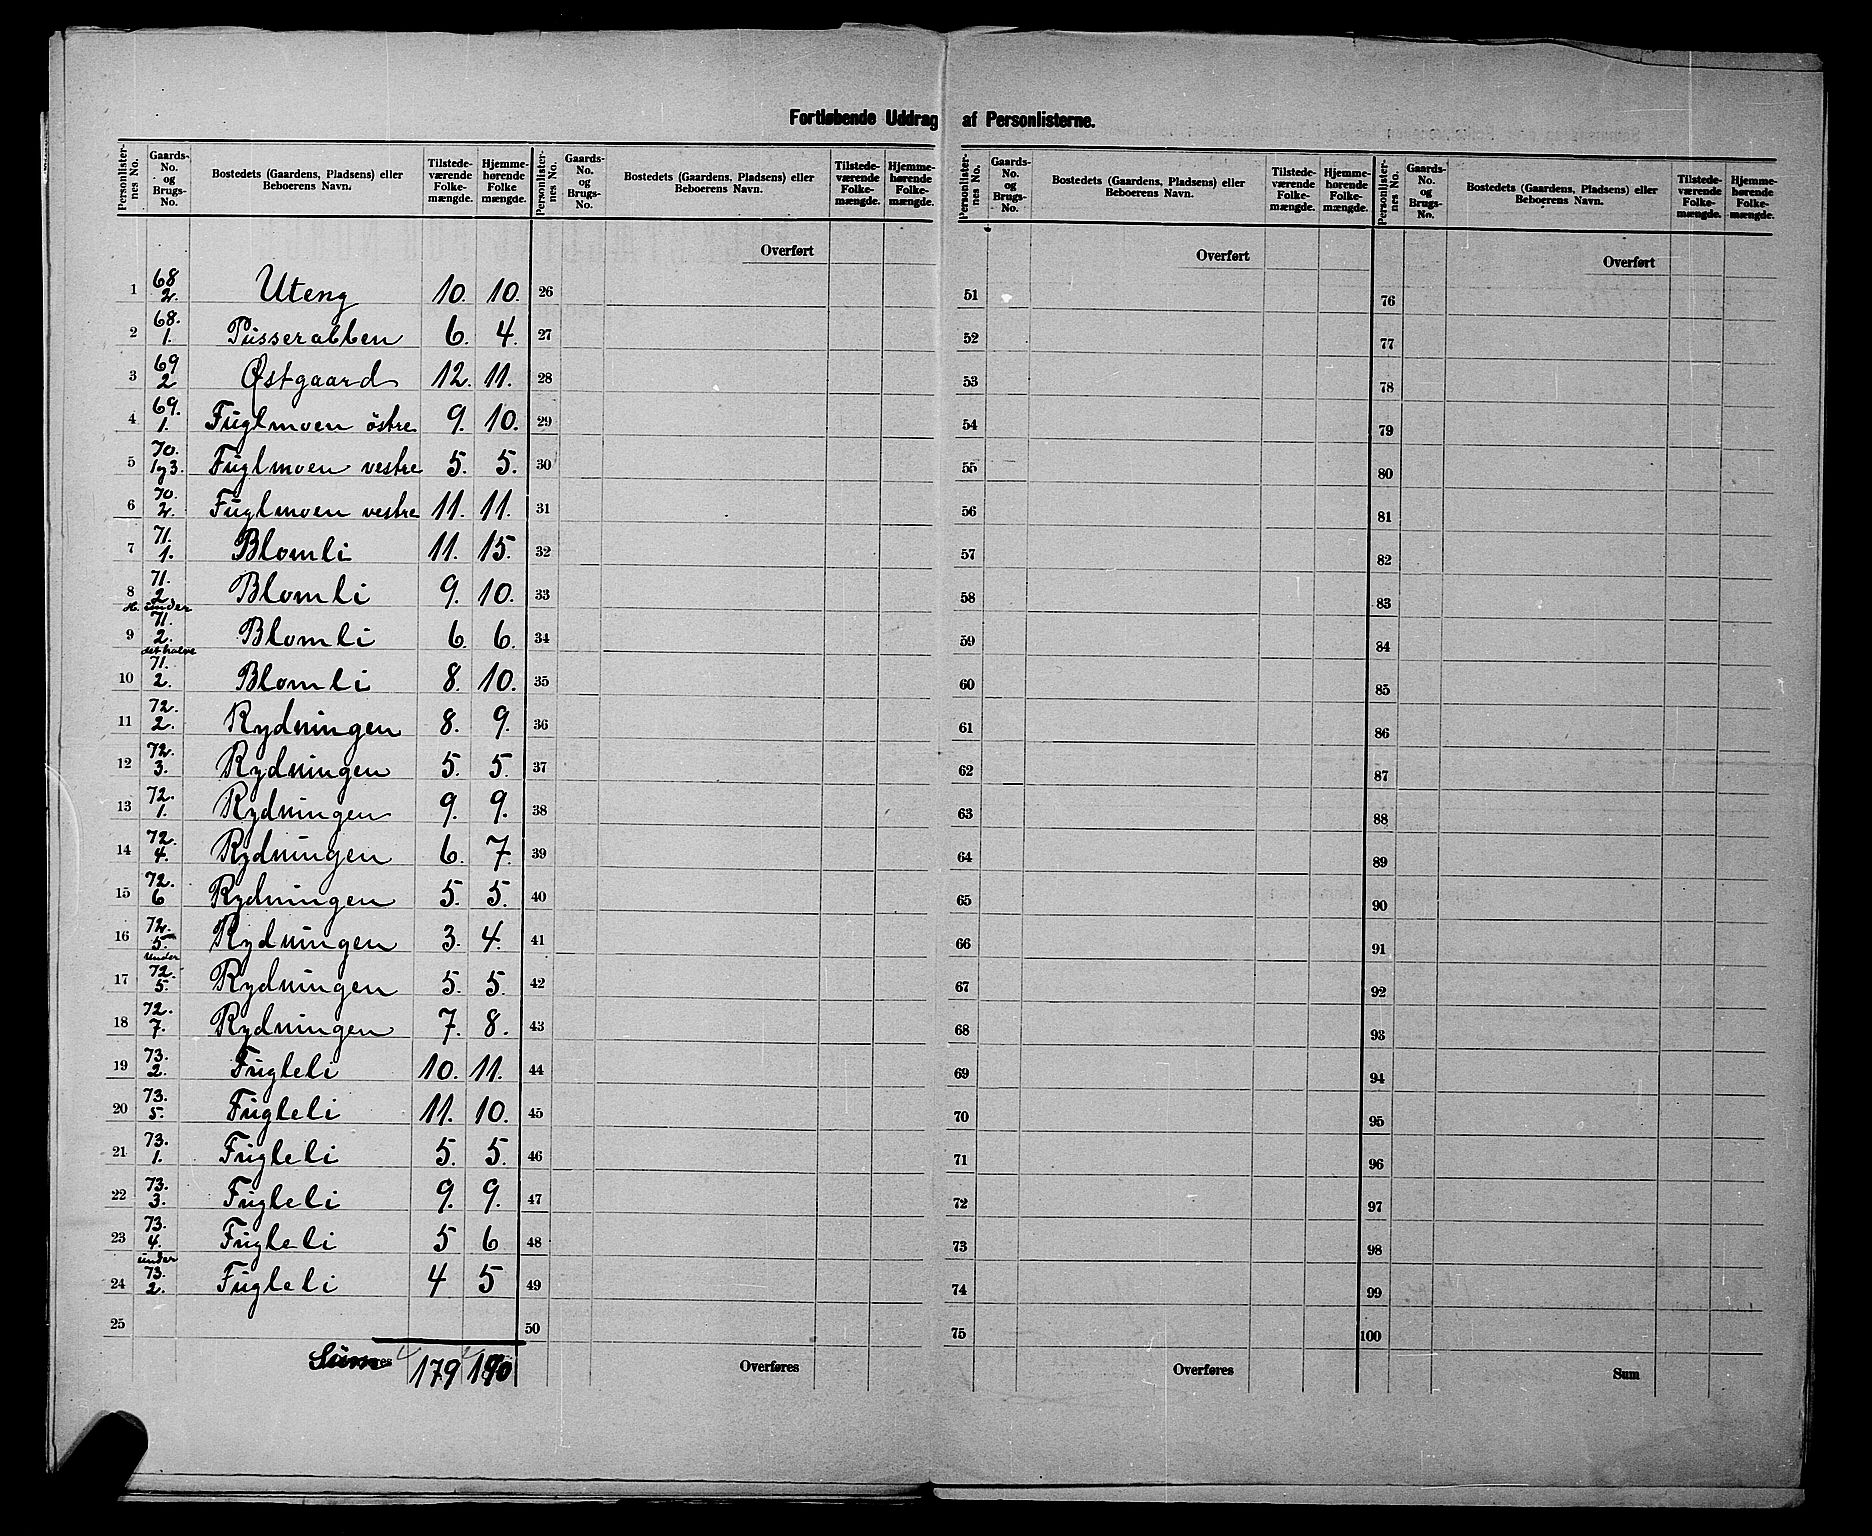 Fortløbende Uddrag af Personlisterne.
Personlister-nes No. | Gaards-No. og Brugs-No. | Bostedets (Gaardens, Pladsens) eller Beboerens Navn. | Tilstede-værende Folke-mængde. | Hjemme-hørende Folke mængde.
Personlister-nes No. | Gaards-No. og Brugs-No. | Bostedets (Gaardens, Pladsens) eller Beboerens Navn. | Tilstede-værende Folke-mængde. | Hjemme-hørende Folke-mængde.
Personlister-nes No. | Gaards-No. og Brugs-No. | Bostedets (Gaardens, Pladsens) eller Beboerens Navn. | Tilstede-værende Folke-mængde. | Hjemme-hørende Folke-mængde.
Personlister-nes No. | Gaards-No. og Brugs-No. | Bostedets (Gaardens, Pladsens) eller Beboerens Navn. | Tilstede-værende Folke-mængde. | Hjemme-hørende Folke-mængde.
Overført Overført Overført
1 68 2. Uteng 10. 10. 26 51 76
2 68. 1. Pusserabben 6. 4. 27 52 77
3 69 2 Østgaard 12. 11. 28 53 78
4 69. 1. Fuglmoen östre 9. 10. 29 54 79
5 70. 1 og 3. Fuglmoen vestre 5. 5. 30 55 80
6 70. 2. Fuglmoen vestre 11. 11. 31 56 81
7 71. 1. Blomli 11. 15. 32 57 82
8 71. 2 Blomli 9. 10. 33 58 83
9 under 71. 2. Blomli 6. 6. 34 59 84
10 det halve 71. 2. Blomli 8. 10. 35 60 85
11 72. 2. Rydningen 8. 9. 36 61 86
12 72. 3. Rydningen 5. 5. 37 62 87
13 72. 1. Rydningen 9. 9. 38 63 88
14 72. 4. Rydningen 6. 7. 39 64 89
15 72. 6 Rydningen 5. 5. 40 65 90
16 72. 5. Rydningen 3. 4. 41 66 91
17 under 72. 5. Rydningen 5. 5. 42 67 92
18 72. 7. Rydningen 7. 8. 43 68 93
19 73. 2. Fugleli 10. 11. 44 69 94
20 73. 5. Fugleli 11. 10. 45 70 95
21 73. 1. Fugleli 5. 5. 46 71 96
22 73. 3. Fugleli 9. 9. 47 72 97
23 73. 4. Fugleli 5 6 48 73 98
24 under 73. 2. Fugleli 4 5 49 74 99
25 50 75 100
Sum 179 190 Overføres Overføres Sum